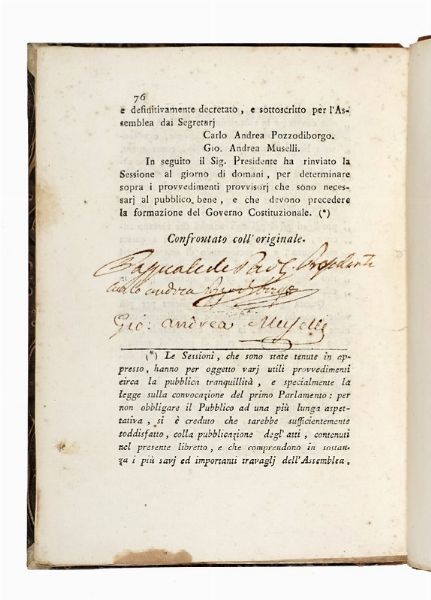 76
e definitivamente decretato, e sottoscritto per l'As-
semblea dai Segretarj
Carlo Andrea Pozzodiborgo.
Gio. Andrea Muselli.
In seguito il Sig. Presidente ha rinviato la
Sessione al giorno di domani, per determinare
sopra i provvedimenti provvisorj che sono neces-
sarj al pubblico bene, e che devono precedere
la formazione del Governo Costituzionale. (*)
Confrontato coll'originale.
Pasquale de Paoli Presidente
Carlo andrea Pozzodiborgo
Gio: andrea Muselli
(*) Le Sessioni, che sono state tenute in ap-
presso, hanno per oggetto varj utili provvedimenti
circa la pubblica tranquillità, e specialmente la
legge sulla convocazione del primo Parlamento: per
non obbligare il Pubblico ad una più lunga aspet-
tativa, si è creduto che sarebbe sufficientemente
soddisfatto, colla pubblicazione degl'atti, contenuti
nel presente libretto, e che comprendono in sostan-
za i più savj ed importanti travaglj dell'Assemblea.